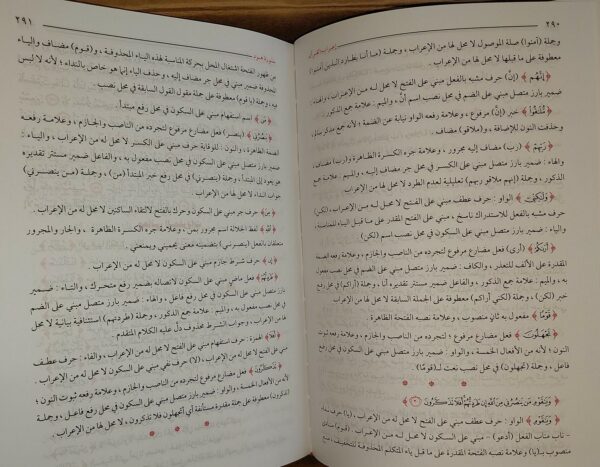 ٢٩٠
إعراب القرآن
وجملة (آمنوا) صلة الموصول لا محل لها من الإعراب ، وجملة (ما أنا بطارد الذين آمنوا)
معطوفة على ما قبلها لا محل لها من الإعراب .
﴿ إِنَّهُم ﴾ (إنّ) حرف مشبه بالفعل مبني على الفتح لا محل له من الإعراب ، والهاء :
ضمير بارز متصل مبني على الضم في محل نصب اسم أنّ ، والميم : علامة جمع الذكور .
﴿ مُّلَاقُوا۟ ﴾ خبر (إنّ) مرفوع ، وعلامة رفعه الواو نيابة عن الضمة ؛ لأنه جمع مذكر سالم ،
وحذفت النون للإضافة ، و(ملاقو) مضاف .
﴿ رَبِّهِمْ ﴾ (رب) مضاف إليه مجرور ، وعلامة جره الكسرة الظاهرة و(رب) مضاف ،
والهاء : ضمير بارز متصل مبني على الكسر في محل جر مضاف إليه ، والميم : علامة جمع
الذكور ، وجملة (إنهم ملاقو ربهم) تعليلية لعدم الطرد لا محل لها من الإعراب .
﴿ وَلَٰكِنِّىٓ ﴾ الواو : حرف عطف مبني على الفتح لا محل له من الإعراب، (لكن)
حرف مشبه بالفعل للاستدراك ناسخ ، مبني على الفتح المقدر على ما قبل الياء للمناسبة ،
والياء : ضمير بارز متصل مبني على السكون في محل نصب اسم (لكن) .
﴿ أَرَىٰكُمْ ﴾ (أرى) فعل مضارع مرفوع لتجرده من الناصب والجازم ، وعلامة رفعه الضمة
المقدرة على الألف للتعذر ، والكاف : ضمير بارز متصل مبني على الضم في محل نصب مفعول
به ، والميم : علامة جمع الذكور ، والفاعل ضمير مستتر تقديره أنا ، وجملة (أراكم) في محل رفع
خبر (لكن) ، وجملة (لكني أراكم) معطوفة على الجملة السابقة لا محل لها من الإعراب .
﴿ قَوْمًا ﴾ مفعول به ثانٍ منصوب ، وعلامة نصبه الفتحة الظاهرة .
﴿ تَجْهَلُونَ ﴾ فعل مضارع مرفوع لتجرده من الناصب والجازم ، وعلامة رفعه ثبوت
النون ؛ لأنه من الأفعال الخمسة ، والواو : ضمير بارز متصل مبني على السكون في محل رفع
فاعل ، وجملة (تجهلون) في محل نصب نعت لـ (قومًا) .
﴿ وَيَٰقَوْمِ مَن يَنصُرُنِى مِنَ ٱللَّهِ إِن طَرَدتُّهُمْ أَفَلَا تَذَكَّرُونَ ﴾
﴿ وَيَٰقَوْمِ ﴾ الواو : حرف عطف مبني على الفتح لا محل له من الإعراب، (يا) حرف نداء
- ناب مناب الفعل (أدعو) - مبني على السكون لا محل له من الإعراب . (قوم) منادى
منصوب بـ(يا) وعلامة نصبه الفتحة المقدرة على ما قبل ياء المتكلم المحذوفة للتخفيف ، منع
٢٩١
سورة هود
من ظهور الفتحة اشتغال المحل بحركة المناسبة لهذه الياء المحذوفة ، و(قوم) مضاف والياء
المحذوفة ضمير مبني في محل جر مضاف إليه ، وحذف الياء إنما هو خاص بالنداء ؛ لأنه لا لبس
فيه ، وجملة (يا قوم) معطوفة على جملة مقول القول السابقة في محل نصب .
﴿ مَن ﴾ اسم استفهام مبني على السكون في محل رفع مبتدأ .
﴿ يَنصُرُنِى ﴾ (ينصر) فعل مضارع مرفوع لتجرده من الناصب والجازم ، وعلامة رفعه
الضمة الظاهرة ، والنون : للوقاية حرف مبني على الكسر لا محل له من الإعراب ، والياء :
ضمير بارز متصل مبني على السكون في محل نصب مفعول به ، والفاعل ضمير مستتر تقديره
هو يعود إلى المبتدأ ، وجملة (ينصرني) في محل رفع خبر المبتدأ (من) ، وجملة (من ينصرني)
جواب النداء لا محل لها من الإعراب .
﴿ مِنَ ﴾ حرف جر مبني على السكون وحرك بالفتح لالتقاء الساكنين لا محل له من الإعراب .
﴿ ٱللَّهِ ﴾ لفظ الجلالة اسم مجرور بمن ، وعلامة جره الكسرة الظاهرة ، والجار والمجرور
متعلقان بالفعل (ينصرني) بتضمينه معنى يحميني ويمنعني .
﴿ إِن ﴾ حرف شرط جازم مبني على السكون لا محل له من الإعراب .
﴿ طَرَدتُّهُمْ ﴾ فعل ماضٍ مبني على السكون لاتصاله بضمير رفع متحرك ، والتاء : ضمير
بارز متصل مبني على الضم في محل رفع فاعل ، والهاء : ضمير بارز متصل مبني على الضم
في محل نصب مفعول به ، والميم : علامة جمع الذكور ، وجملة (طردتهم) استئنافية بيانية لا محل
لها من الإعراب ، وجواب الشرط محذوف دلّ عليه الكلام المتقدم .
﴿ أَفَلَا ﴾ الهمزة : حرف استفهام مبني على الفتح لا محل له من الإعراب ، والفاء : حرف عطف
مبني على الفتح لا محل له من الإعراب ، (لا) حرف نفي مبني على السكون لا محل له من الإعراب .
﴿ تَذَكَّرُونَ ﴾ فعل مضارع مرفوع لتجرده من الناصب والجازم ، وعلامة رفعه ثبوت النون ؛
لأنه من الأفعال الخمسة ، والواو : ضمير بارز متصل مبني على السكون في محل رفع فاعل ، وجملة
(تذكرون) معطوفة على جملة مقدرة مستأنفة أي أتجهلون فلا تذكرون ، لا محل لها من الإعراب .